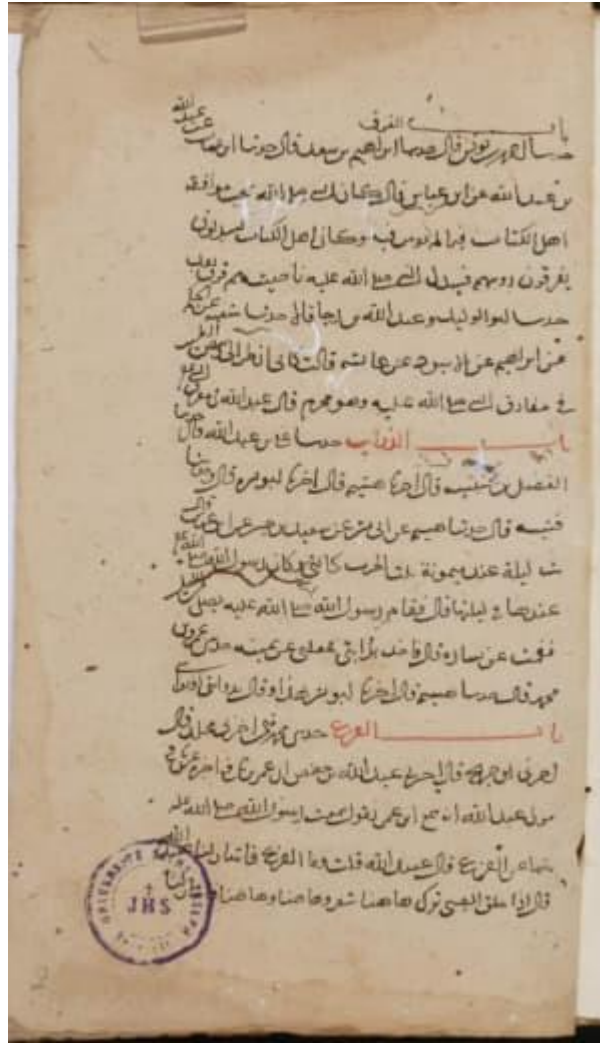 باب الفرق
حدثنا احمد بن يونس قال حدثنا ابراهيم بن سعد قال حدثنا ابن شهاب عن عبيد الله
بن عبد الله عن ابن عباس قال كان النبي صلى الله يحب موافقة
اهل الكتاب فيما لم يومر فيه وكان اهل الكتاب يسدلون
يفرقون روسهم فسدل النبي صلى الله عليه ناصيته ثم فرق بعد
حدثنا ابو الوليد وعبد الله بن رجا قالا حدثنا شعبة عن الحكم
عن ابراهيم عن الاسود عن عائشة قالت كاني انظر الى وبيص الطيب
في مفارق النبي صلى الله عليه وهو محرم قال عبد الله في مفرق النبي
باب الذوايب حدثنا علي بن عبد الله قال حدثنا
الفضل بن عنبسة قال اخبرنا هشيم قال اخبرنا ابو بشر قال وحدثنا
قتيبة قال حدثنا هشيم عن ابي بشر عن سعيد بن جبير عن ابن عباس قال
بت ليلة عند ميمونة بنت الحرث خالتي وكان رسول الله صلى الله
عندها في ليلتها قال فقام رسول الله صلى الله عليه يصلي
فقمت عن يساره قال فاخذ بذوابتي فجعلني عن يمينه حدثني عمرو بن
محمد قال حدثنا هشيم قال اخبرنا ابو بشر بهذا وقال بذوابتي او براسي
باب القزع حدثني محمد قال اخبرني مخلد قال
اخبرني ابن جريج قال اخبرني عبيد الله بن حفص ان عمر بن نافع اخبره عن نافع
مولى عبد الله انه سمع ابن عمر يقول سمعت رسول الله صلى الله عليه
ينهى عن القزع قال عبيد الله قلت وما القزع فاشار لنا عبيد الله
قال اذا حلق الصبي ترك هاهنا شعر وهاهنا وهاهنا
JHS